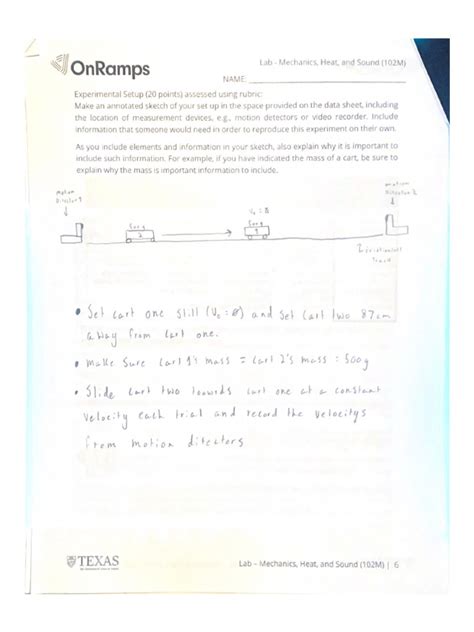 OnRamps
Lab - Mechanics, Heat, and Sound (102M)
NAME:
Experimental Setup (20 points) assessed using rubric:
Make an annotated sketch of your set up in the space provided on the data sheet, including
the location of measurement devices, e.g., motion detectors or video recorder. Include
information that someone would need in order to reproduce this experiment on their own.
As you include elements and information in your sketch, also explain why it is important to
include such information. For example, if you have indicated the mass of a cart, be sure to
explain why the mass is important information to include.
motion
motion
V₀ = Ø
2
1
Track
• Set cart one still (V₀ = Ø) and set cart two 87cm
away from cart one.
• Make sure cart 1's mass = cart 2's mass = 500g
• Slide cart two towards cart one at a constant
velocity each trial and record the velocitys
from motion ditectors
TEXAS
Lab - Mechanics, Heat, and Sound (102M) | 6